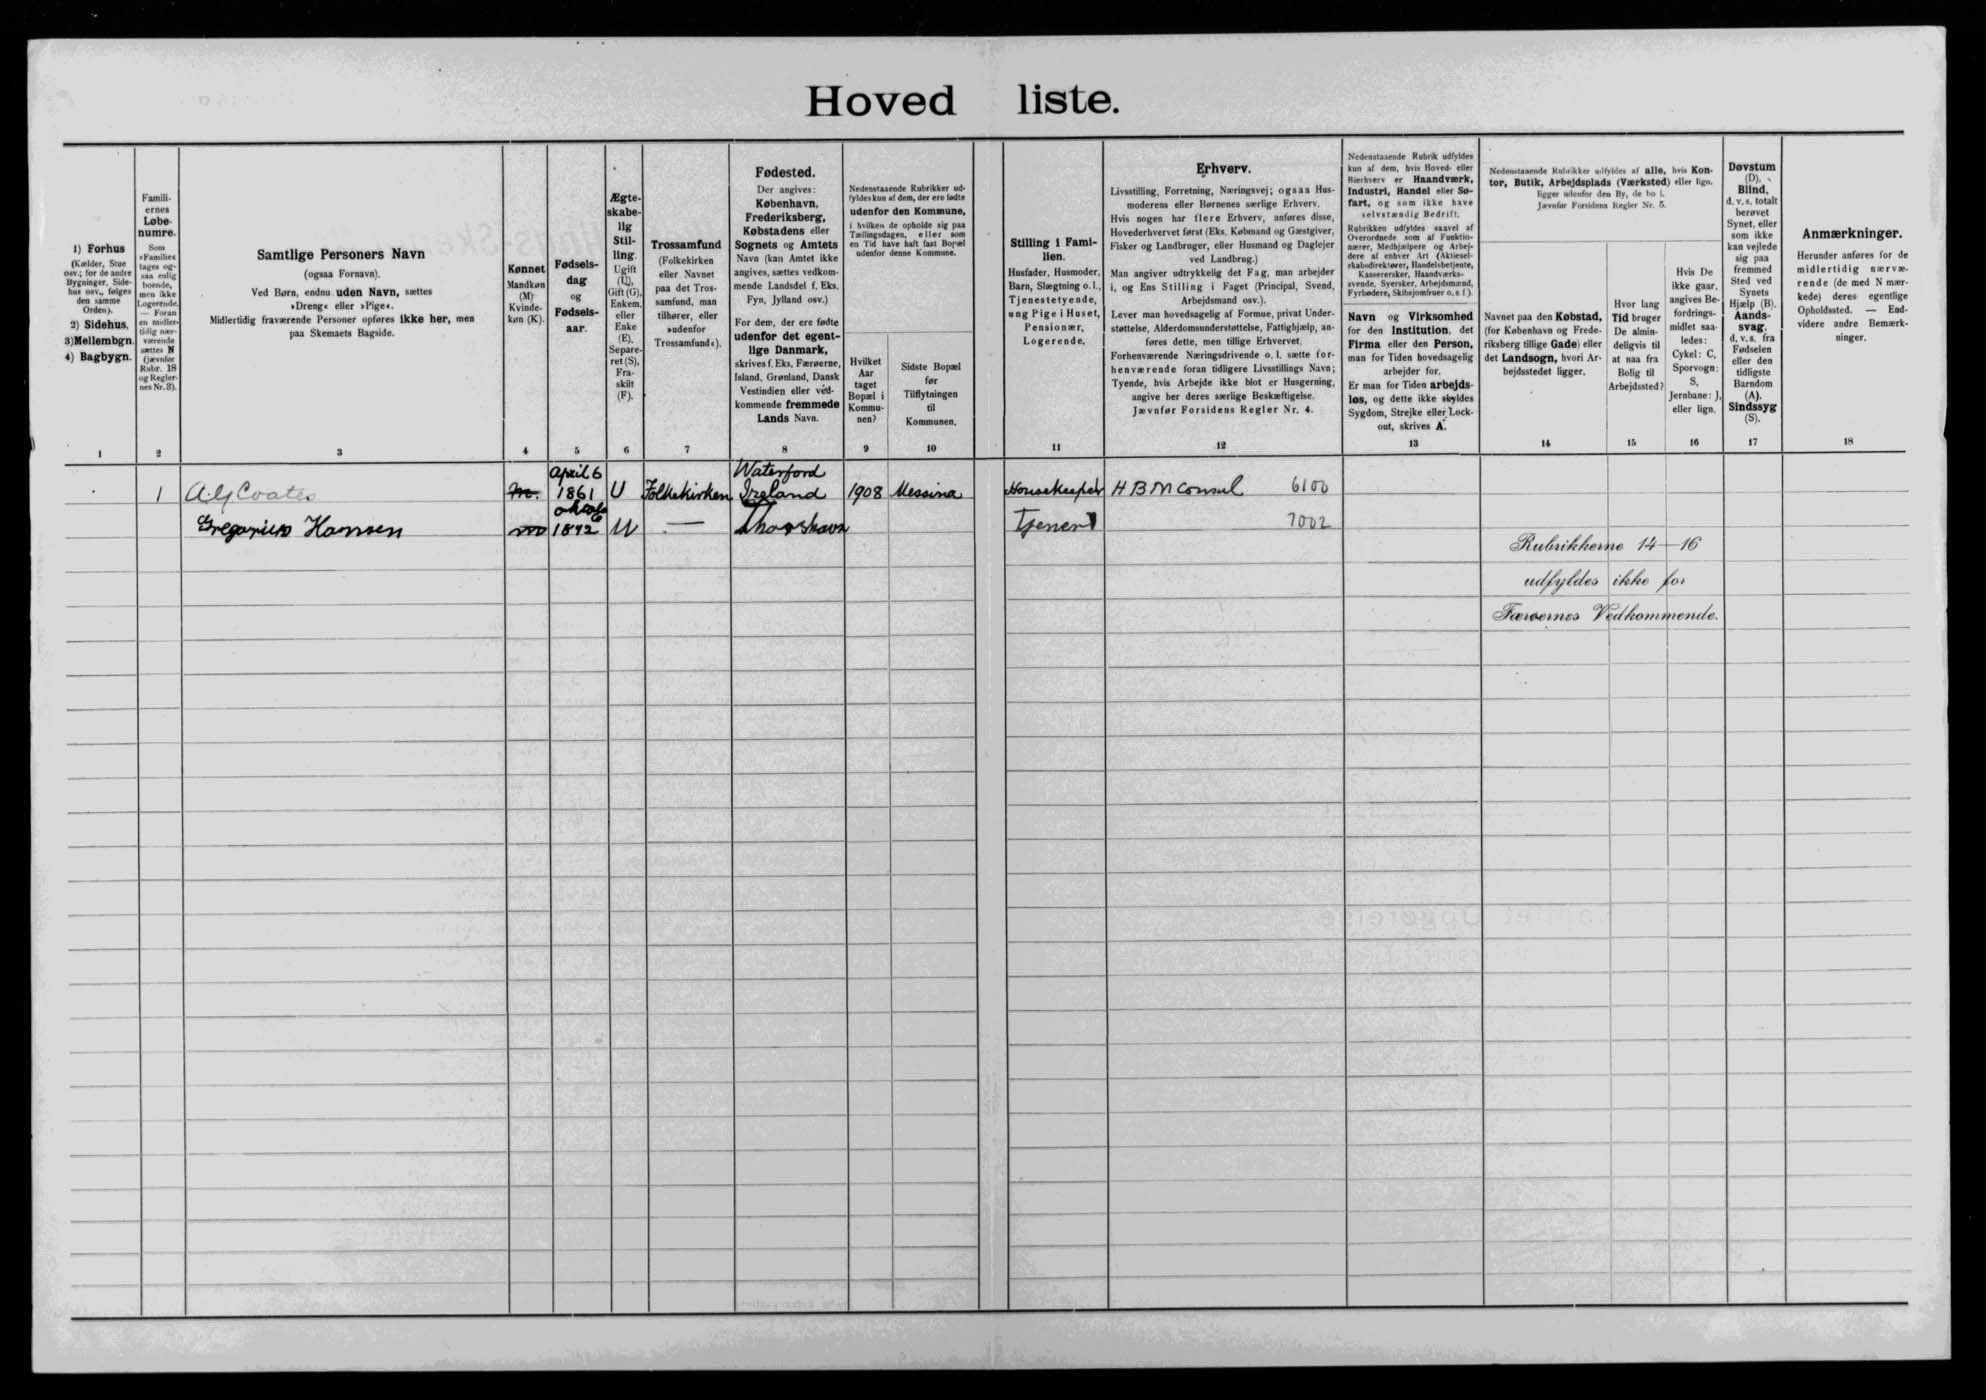 Hoved liste.
1) Forhus
(Kælder, Stue
osv.; for de andre
Bygninger, Side-
hus osv., følges
den samme
Orden).
2) Sidehus,
3) Mellembgn.
4) Bagbygn.
1
Famili-
ernes
Løbe-
numre.
Som
»Familie«
tages og-
saa enlig
boende,
men ikke
Logerende.
— Foran
en midler-
tidig nær-
værende
sættes N
(jævnfør
Rubr. 18
og Regler-
nes Nr. 3).
2
Samtlige Personers Navn
(ogsaa Fornavn).
Ved Børn, endnu uden Navn, sættes
»Dreng« eller »Pige«.
Midlertidig fraværende Personer opføres ikke her, men
paa Skemaets Bagside.
3
Kønnet
Mandkøn
(M)
Kvinde-
køn (K).
4
Fødsels-
dag
og
Fødsels-
aar.
5
Ægte-
skabe-
lig
Stil-
ling.
Ugift
(U),
Gift (G),
Enkem.
eller
Enke
(E),
Separe-
ret (S),
Fra-
skilt
(F).
6
Trossamfund
(Folkekirken
eller Navnet
paa det Tros-
samfund, man
tilhører, eller
»udenfor
Trossamfund«).
7
Fødested.
Der angives:
København,
Frederiksberg,
Købstadens eller
Sognets og Amtets
Navn (kan Amtet ikke
angives, sættes vedkom-
mende Landsdel f. Eks.
Fyn, Jylland osv.)
For dem, der ere fødte
udenfor det egent-
lige Danmark,
skrives f. Eks. Færøerne,
Island, Grønland, Dansk
Vestindien eller ved-
kommende fremmede
Lands Navn.
8
Nedenstaaende Rubrikker ud-
fyldes kun af dem, der ere fødte
udenfor den Kommune,
i hvilken de opholde sig paa
Tællingsdagen, eller som
en Tid have haft fast Bopæl
udenfor denne Kommune.
Hvilket
Aar
taget
Bopæl i
Kommu-
nen?
9
Sidste Bopæl
før
Tilflytningen
til
Kommunen.
10
Stilling i Fami-
lien.
Husfader, Husmoder,
Barn, Slægtning o. l.,
Tjenestetyende,
ung Pige i Huset,
Pensionær,
Logerende.
11
Erhverv.
Livsstilling, Forretning, Næringsvej; ogsaa Hus-
moderens eller Børnenes særlige Erhverv.
Hvis nogen har flere Erhverv, anføres disse,
Hovederhvervet først (Eks. Købmand og Gæstgiver,
Fisker og Landbruger, eller Husmand og Daglejer
ved Landbrug.)
Man angiver udtrykkelig det Fag, man arbejder
i, og Ens Stilling i Faget (Principal, Svend,
Arbejdsmand osv.).
Lever man hovedsagelig af Formue, privat Under-
støttelse, Alderdomsunderstøttelse, Fattighjælp, an-
føres dette, men tillige Erhvervet.
Forhenværende Næringsdrivende o. l. sætte for-
henværende foran tidligere Livsstillings Navn;
Tyende, hvis Arbejde ikke blot er Husgerning,
angive her deres særlige Beskæftigelse.
Jævnfør Forsidens Regler Nr. 4.
12
Nedenstaaende Rubrik udfyldes
kun af dem, hvis Hoved- eller
Bierhverv er Haandværk,
Industri, Handel eller Sø-
fart, og som ikke have
selvstændig Bedrift.
Rubrikken udfyldes saavel af
Overordnede som af Funktio-
nærer, Medhjælpere og Arbej-
dere af enhver Art (Aktiesel-
skabsdirektører, Handelsbetjente,
Kassererrsker, Haandværks-
svende, Syersker, Arbejdsmænd,
Fyrbødere, Skibsjomfruer o. s. f.).
Navn og Virksomhed
for den Institution, det
Firma eller den Person,
man for Tiden hovedsagelig
arbejder for.
Er man for Tiden arbejds-
løs, og dette ikke skyldes
Sygdom, Strejke eller Lock-
out, skrives A.
13
Nedenstaaende Rubrikker udfyldes af alle, hvis Kon-
tor, Butik, Arbejdsplads (Værksted) eller lign.
ligger udenfor den By, de bo i.
Jævnfør Forsidens Regler Nr. 5.
Navnet paa den Købstad,
(for København og Frede-
riksberg tillige Gade) eller
det Landsogn, hvori Ar-
bejdsstedet ligger.
14
Hvor lang
Tid bruger
De almin-
deligvis til
at naa fra
Bolig til
Arbejdssted?
15
Hvis De
ikke gaar,
angives Be-
fordrings-
midlet saa-
ledes:
Cykel: C,
Sporvogn:
S,
Jernbane: J,
eller lign.
16
Døvstum
(D),
Blind,
d. v. s. totalt
berøvet
Synet, eller
som ikke
kan vejlede
sig paa
fremmed
Sted ved
Synets
Hjælp (B).
Aands-
svag,
d. v. s. fra
Fødselen
eller den
tidligste
Barndom
(A).
Sindssyg
(S).
17
Anmærkninger.
Herunder anføres for de
midlertidig nærvæ-
rende (de med N mær-
kede) deres egentlige
Opholdssted. — End-
videre andre Bemærk-
ninger.
18
1 A.G. Coates m. April 6 1861 U Folkekirken Waterford Ireland 1908 Messina Housekeeper H B M Consul 6100
Gregorius Hansen m 6 1892 U — Thorshavn Tjener 7002
Rubrikkerne 14—16
udfyldes ikke for
Færøernes Vedkommende.